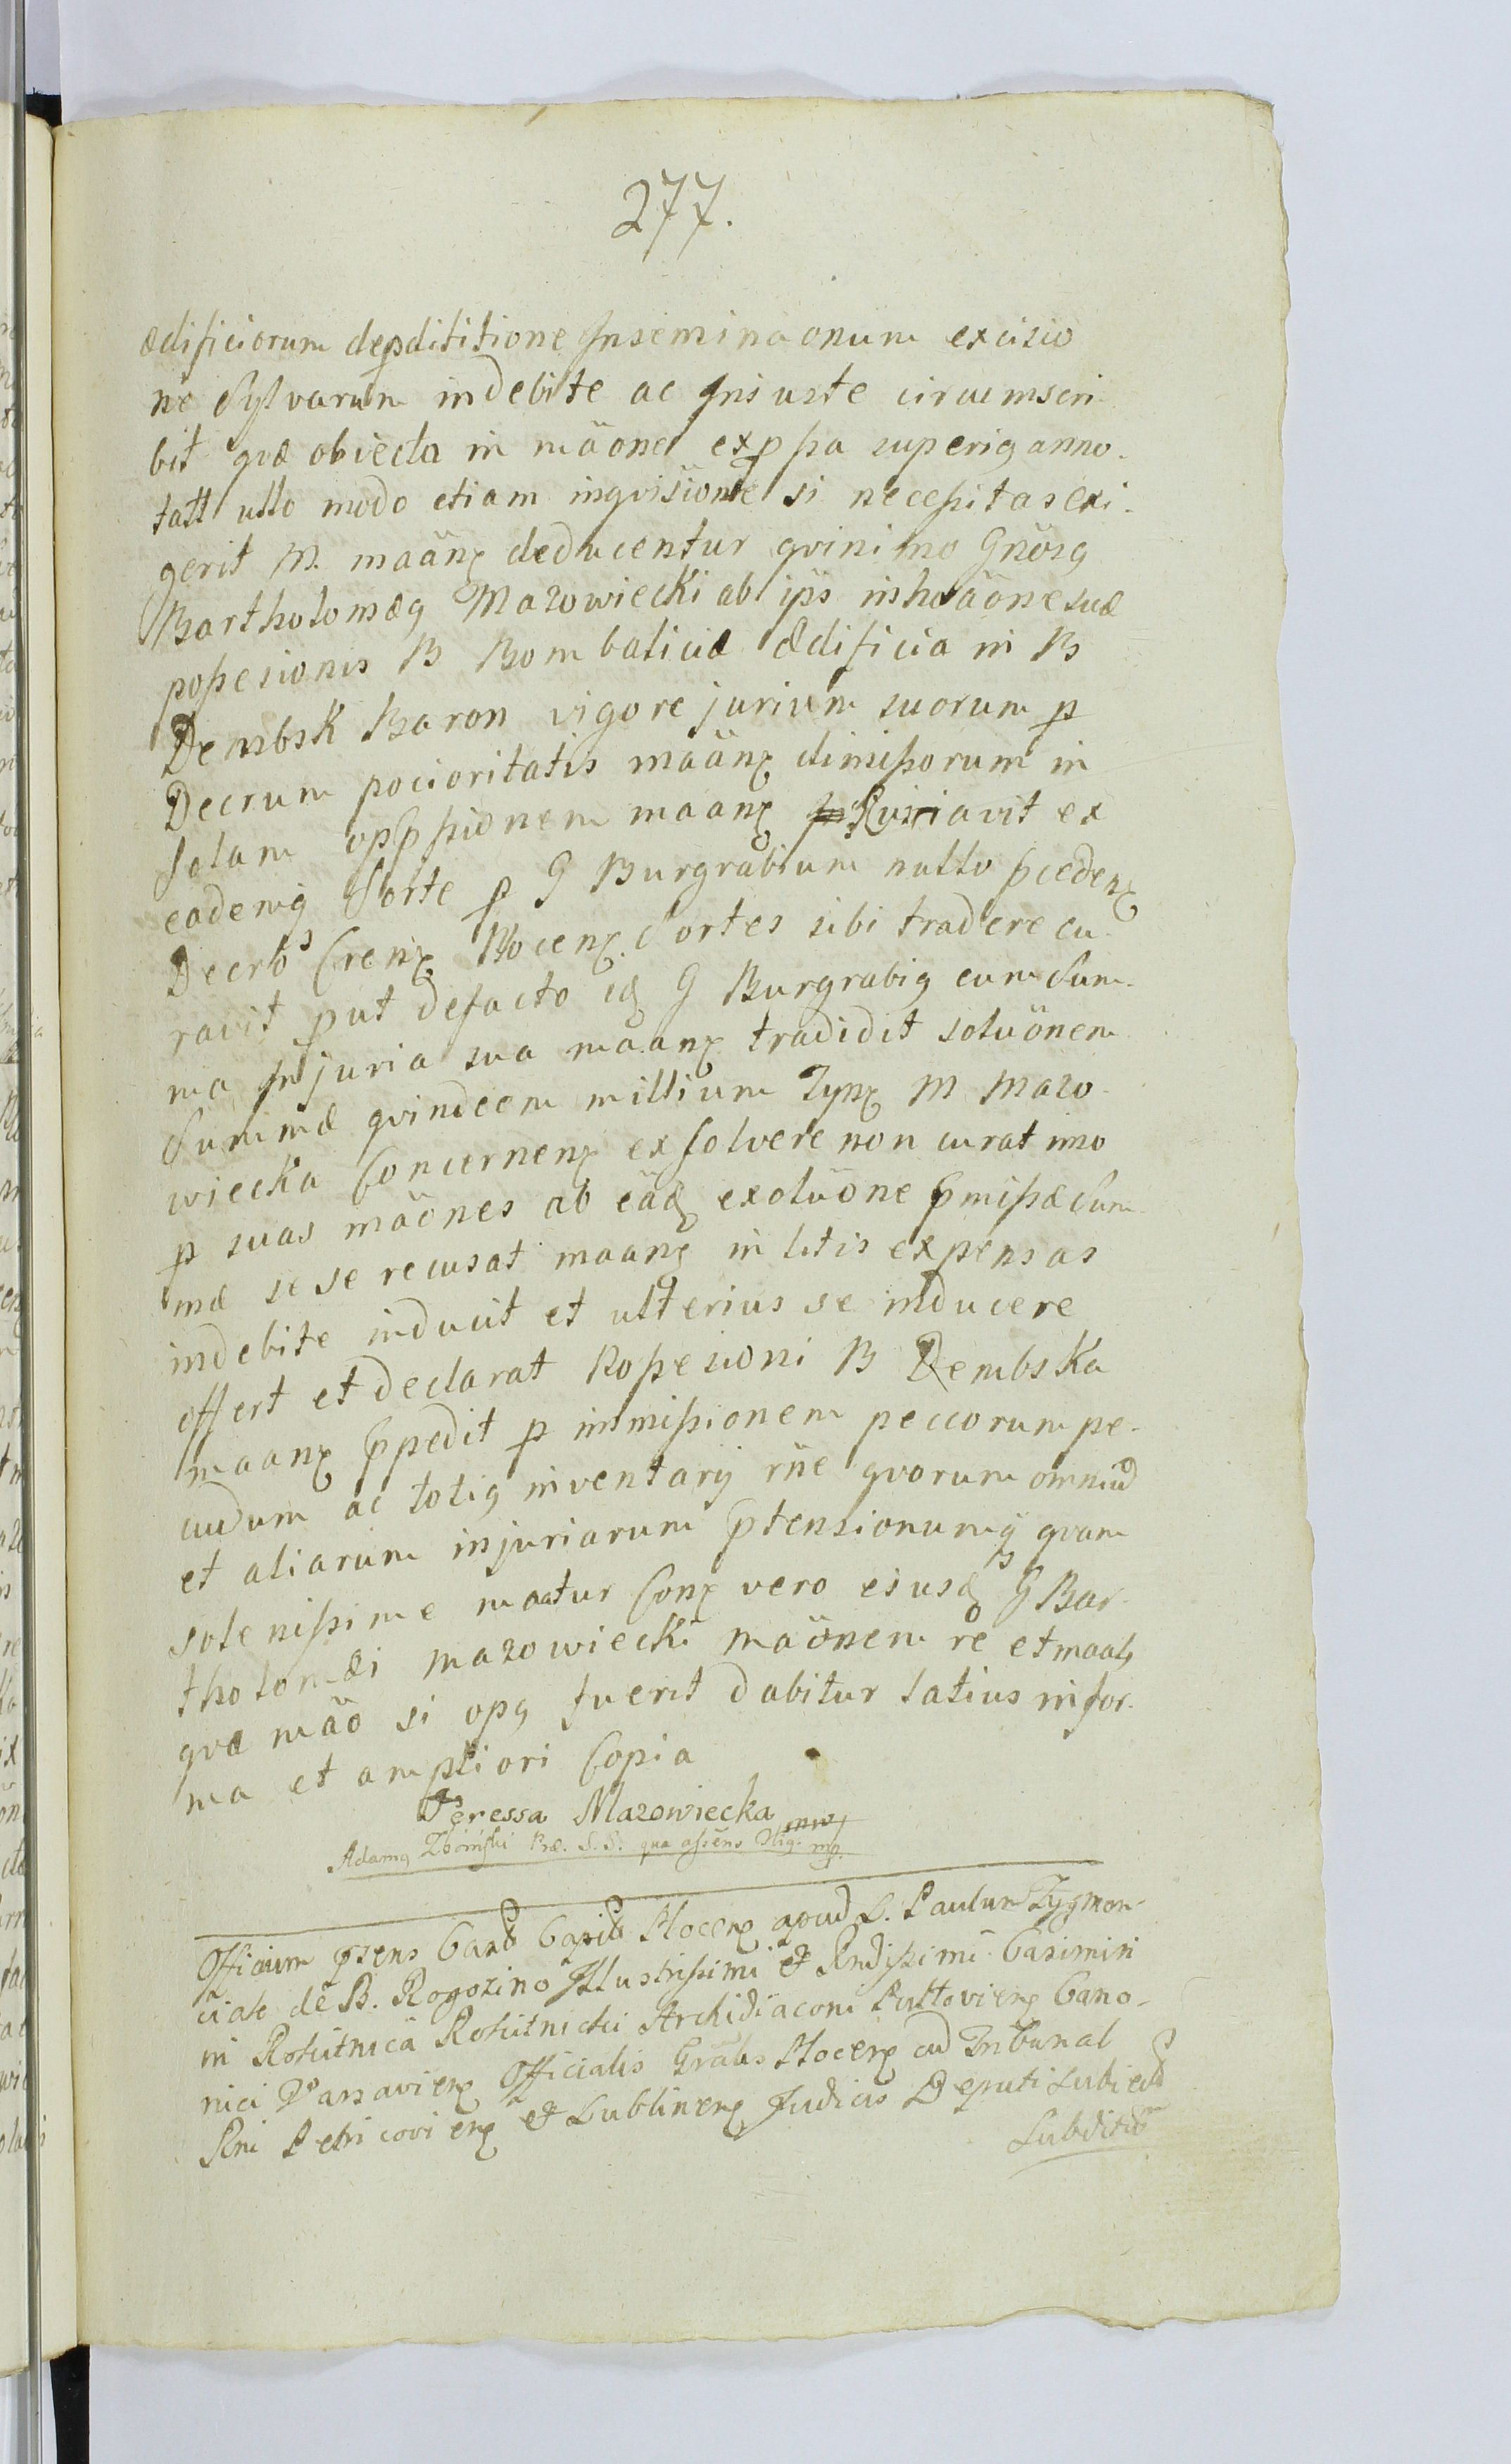 277.
ædificiorum depditititione Inseminaonum excisio
ne Sylvarum indebite ac Injuste circumscri-
bit qvæ obiecta in mäone expssa superig anno-
tatt ullo modo etiam inqvisione si necessitas exi-
gerit M. maänz deducentur qvinimo Gnösg
Bartholomæg Mazowiecki ab ipis inhoäone suæ
possesionis B Bombaliciæ ædificia in B
Dembsk Baron vigore jurium suorum p
Decrum pocioritatis maänz dimissorum in
solam oppssionem maanz Ruinavit ex
eademg Sorte p G Burgrabium nullo pcedenz
Decrto Crenz Plocenz Sortes sibi tradere cu-
ravit put defacto idz G Burgrabig cum sum-
ma Injuria sua maanz tradidit soluönem
Summæ qvindecem millium Tynz M Mazo-
wiecka Concernenz exsolvere non curat imo
p suas mäones ab eädz exoluöne pmissæ sum-
mæ sese recusat maanz in litis expensas
indebite inducit et ulterius se inducere
offert et declarat Possesioni B Dembska
maanz ppedit p immissionem peccorum pe-
cudum ac totig inventarij rne qvorum omniu
et aliarum injuriarum ptensionumq qvam
solenissime maatur Conz vero ejusdz G Bar-
tholomæi Mazowiecki mäonem re et maats
qvæ mäo si opg fuerit dabitur latius in for-
ma et ampliori Copia
Teressa Mazowiecka mw
Adamg Zboinski S. S. qua assens mg.
Officium psens Cast Capit Plocenz apud L. Paulum Zygmon-
ciale de B. Rogozino Illustrissimi et Rndissimi Casimiri
in Rokitnica Rokitnicki Archidiaconi Pultovienz Cano-
nici Varsavienz Officialis Grälis Plocenz ad Tribunal
Rni Petricovienz et Lublinenz Judicis Deputi Subjectt
Subditu